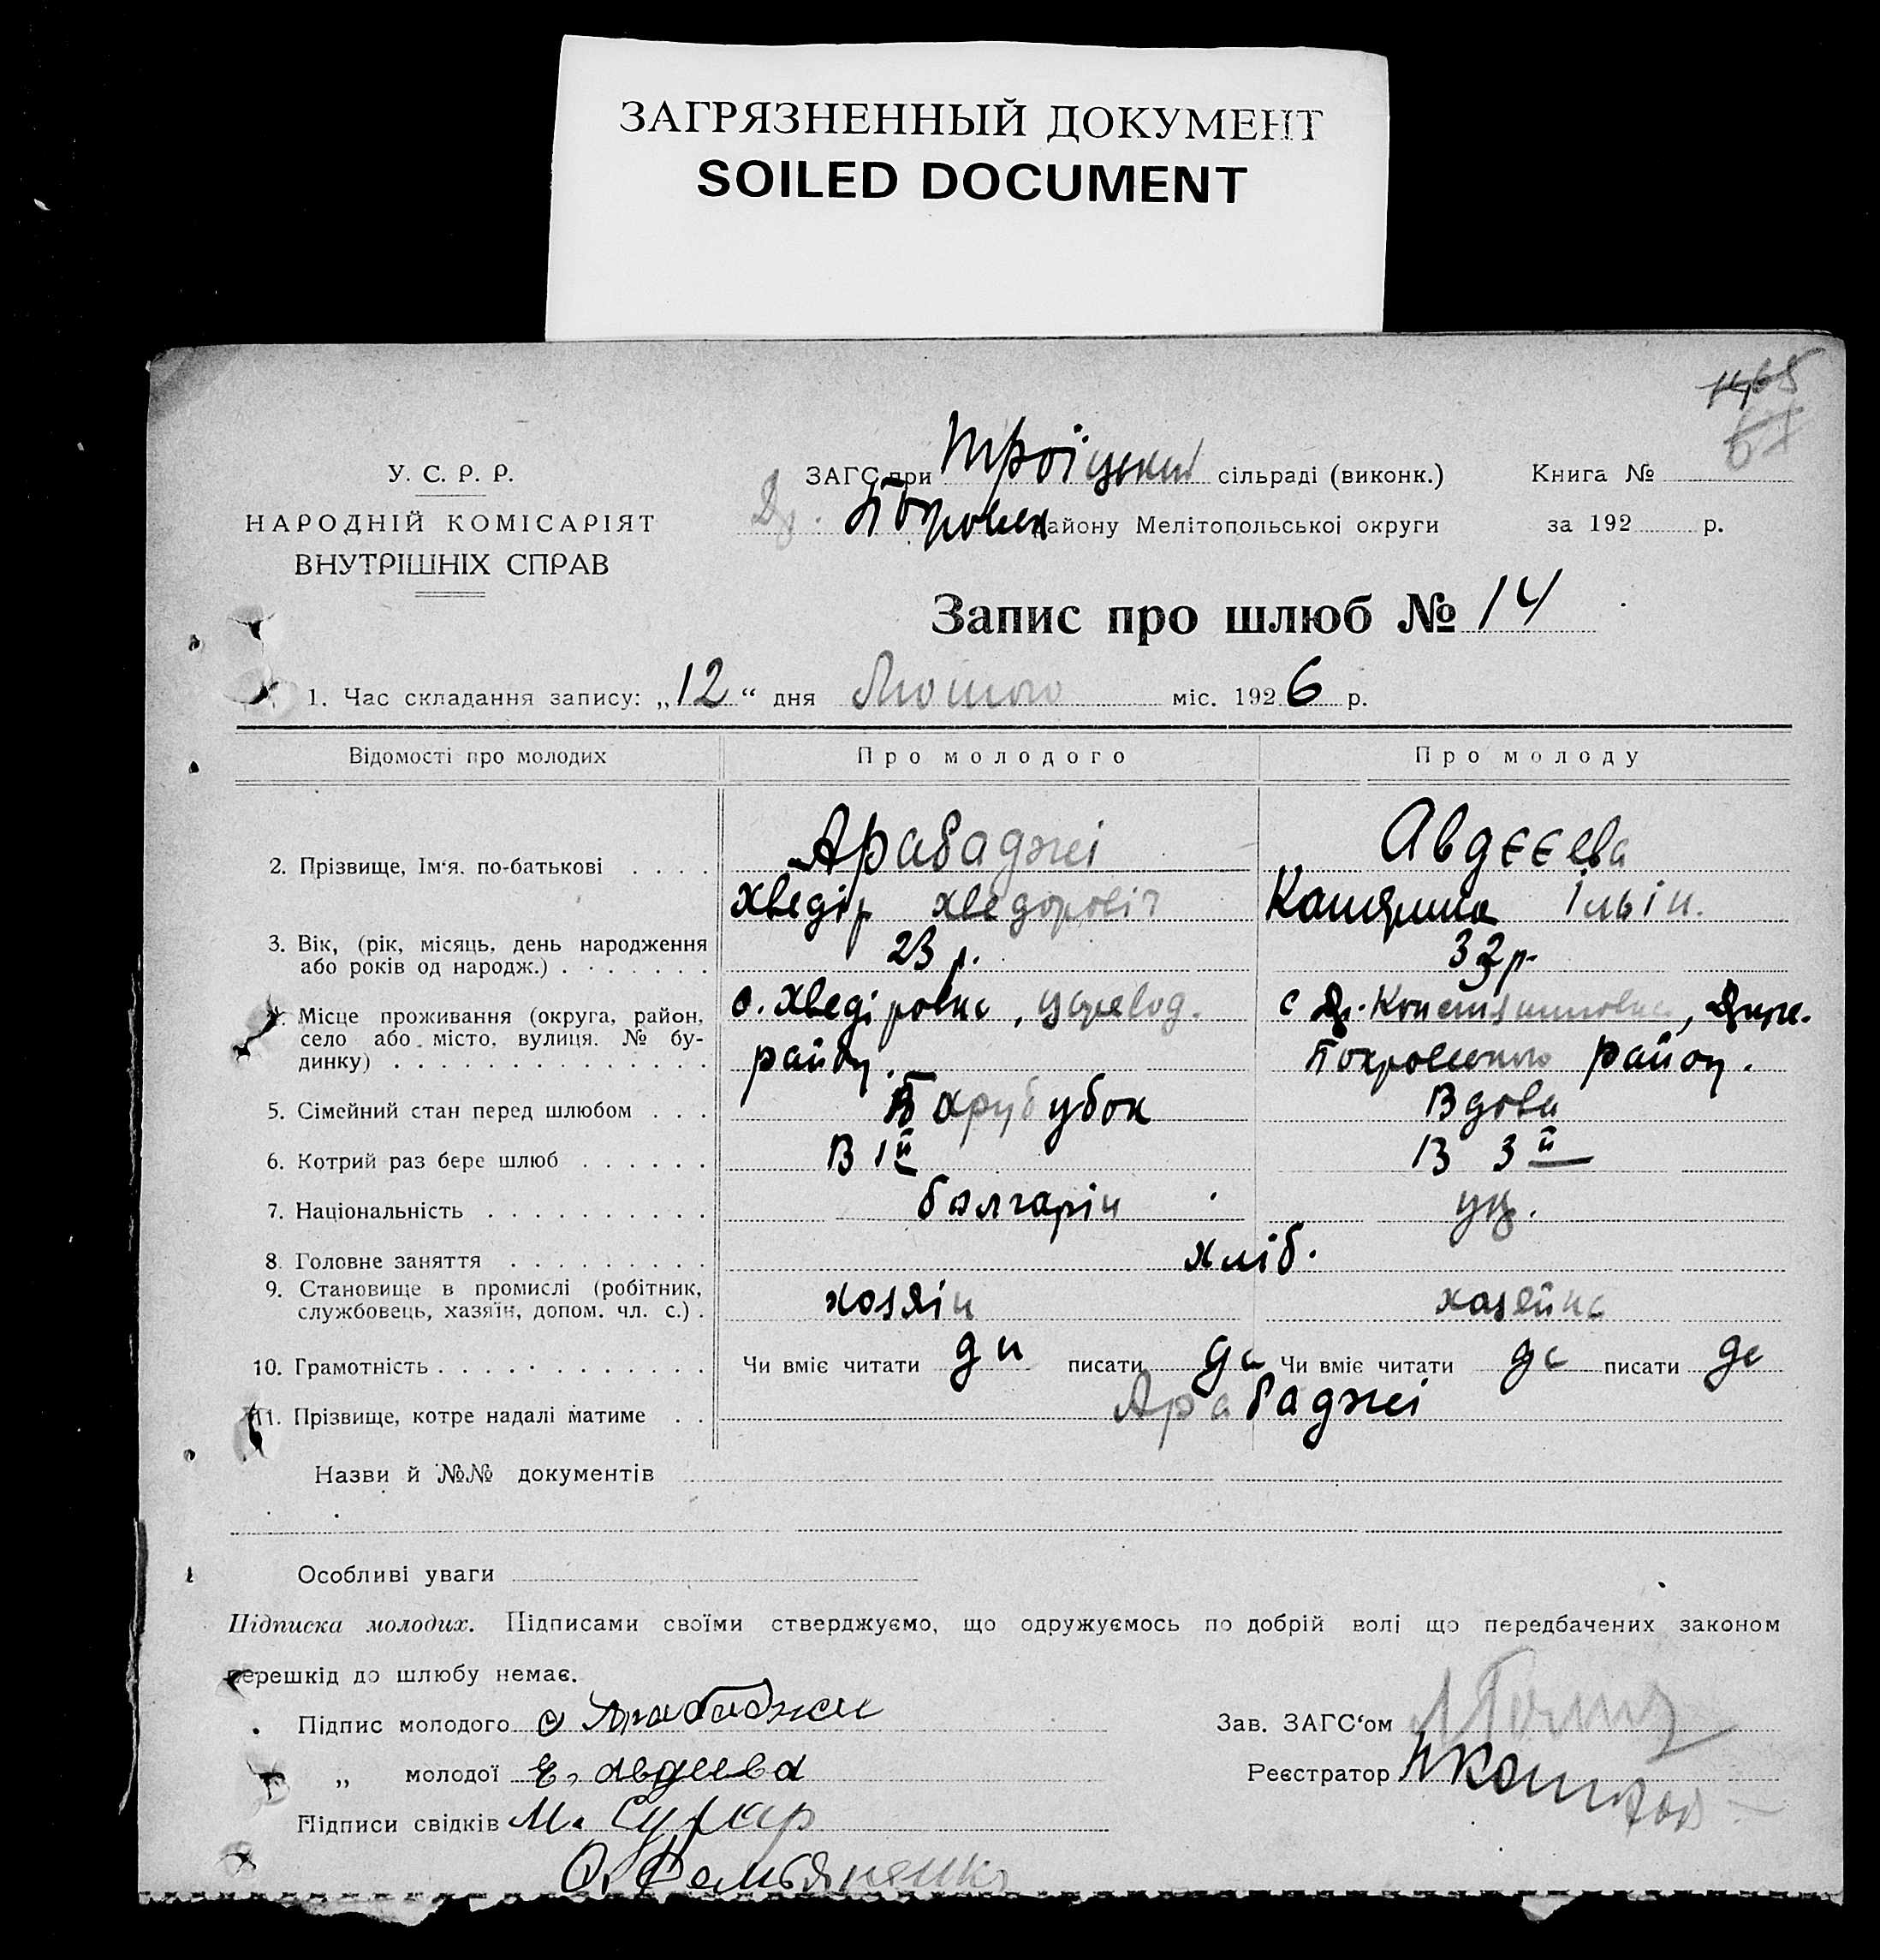 ЗАГРЯЗНЕННЫЙ ДОКУМЕНТ
SOILED DOCUMENT
У. С. Р. Р.
НАРОДНІЙ КОМІСАРІЯТ
ВНУТРІШНІХ СПРАВ
ЗАГС при Троїцький сільраді (виконк.)
району Мелітопольської округи
Книга №
за 192 р.
Запис про шлюб № 14
1. Час складання запису: „12“ дня Лютого міс. 1926 р.
Відомості про молодих Про молодого Про молоду
2. Прізвище, Ім'я, по-батькові . . . . Арабаджеі Авдєєева
Хведір Хведоровіч Катярина Ільін.
3. Вік, (рік, місяць, день народження або років од народж.) . . . . . . . 23 р. 32 р.
4. Місце проживання (округа, район, село або місто, вулиця. № будинку) . . . . . . . . . . . . . с. Хведіровка, район. с Константиновка, Покровського район.
5. Сімейний стан перед шлюбом . . . Вдова
6. Котрий раз бере шлюб . . . . . . В 1й В 3й
7. Національність . . . . . . . . . . болгарін
8. Головне заняття . . . . . . . . . хліб.
9. Становище в промислі (робітник, службовець, хазяїн, допом. чл. с.) . хозяін хазяйка
10. Грамотність . . . . . . . . . . . . Чи вміє читати да писати да Чи вміє читати да писати да
11. Прізвище, котре надалі матиме . . Арабаджеі
Назви й №№ документів
Особливі уваги
Підписка молодих. Підписами своїми стверджуємо, що одружуємось по добрій волі що передбачених законом
перешкід до шлюбу немає.
Підпис молодого Арабаджи
Зав. ЗАГС'ом
„ молодої Е. авдеева
Реєстратор
Підписи свідків М.